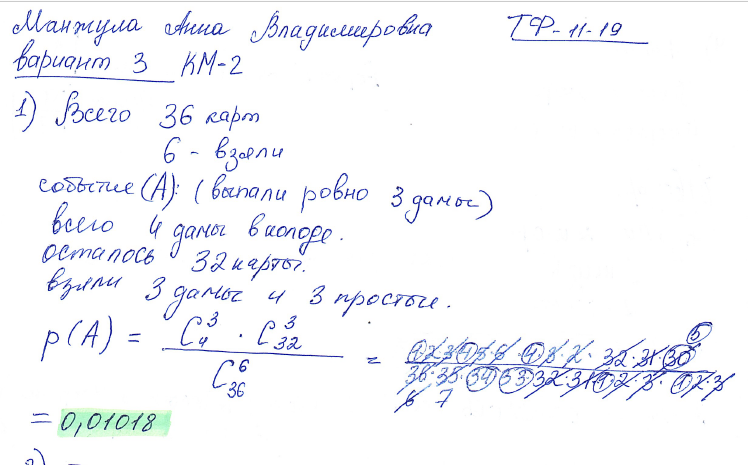 Манжула Анна Владимировна ТФ-11-19
вариант 3 КМ-2
1) Всего 36 карт
6 - взяли
событие (A): (выпали ровно 3 дамы)
всего 4 дамы в колоде.
осталось 32 карты.
взяли 3 дамы и 3 простые.
p(A) = C₄³ · C₃₂³ / C₃₆⁶ =
= 0,01018
2)